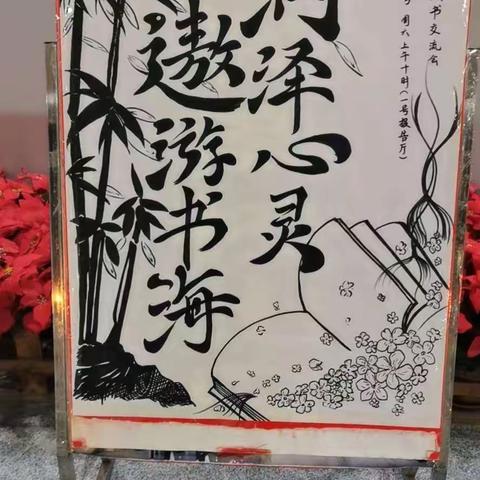 书交流会
周六上午十时(一号报告厅)
润泽心灵
遨游书海